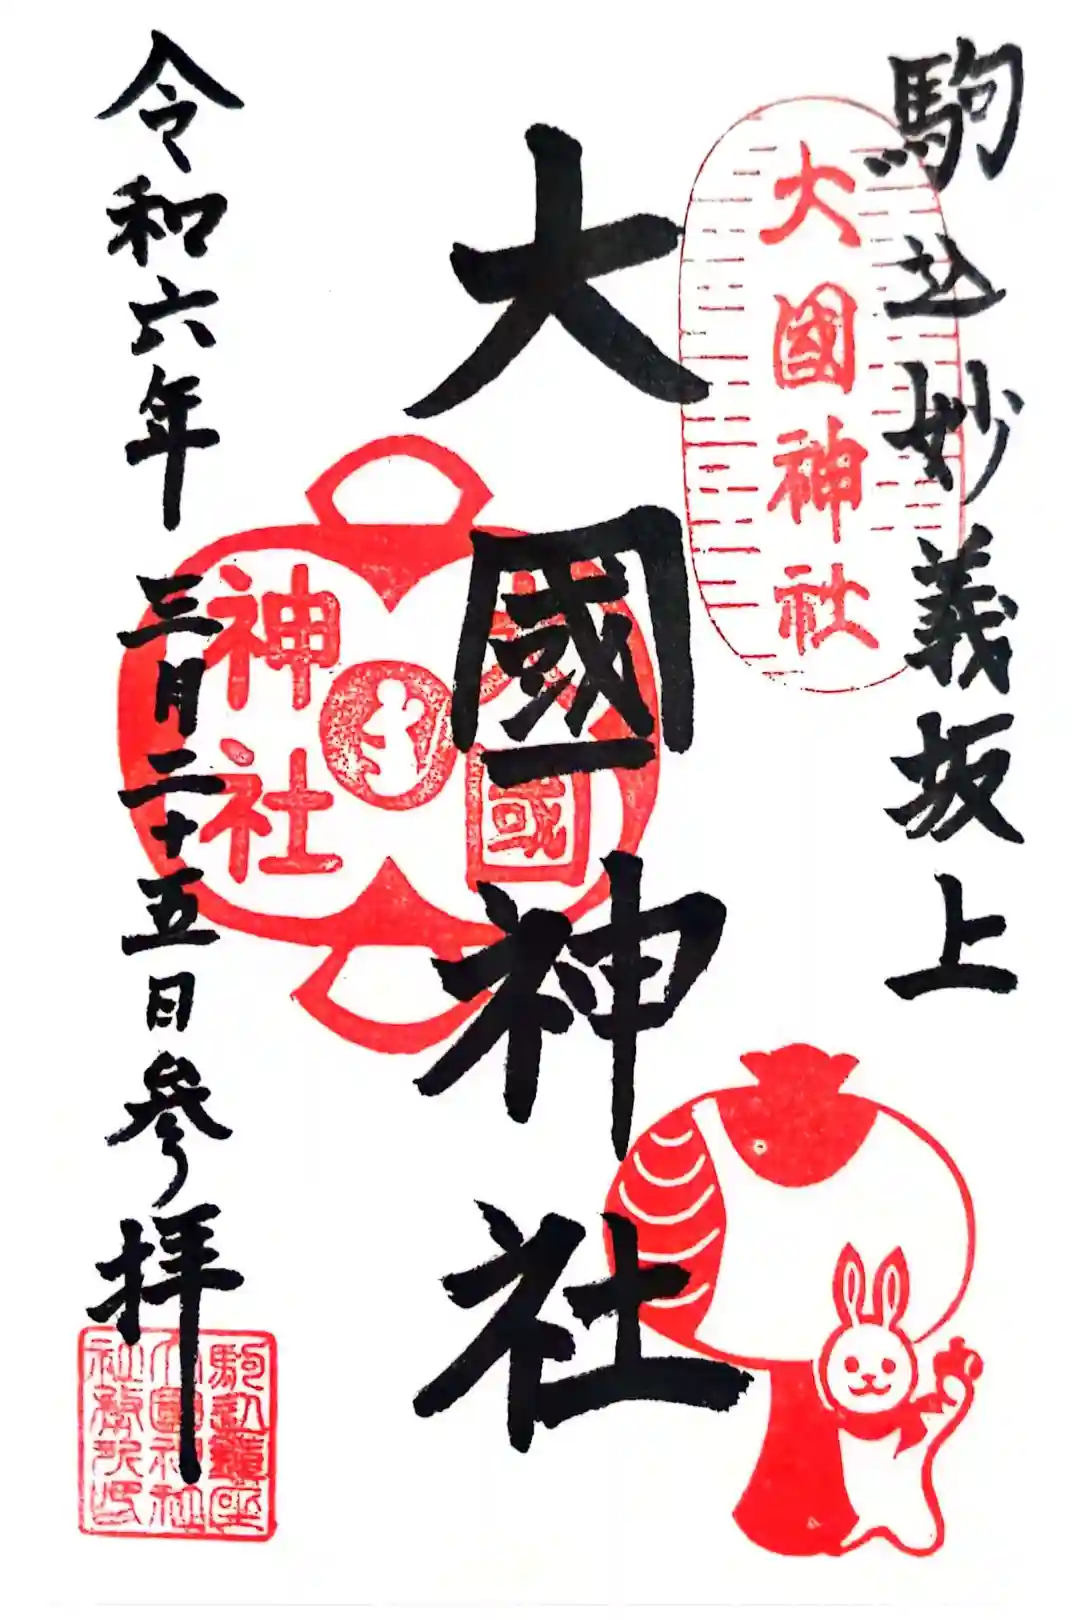 駒込妙義坂上
大國神社
大國神社
大國神社
令和六年三月二十五日参拝
駒込鎮座
大國神社
社務所印